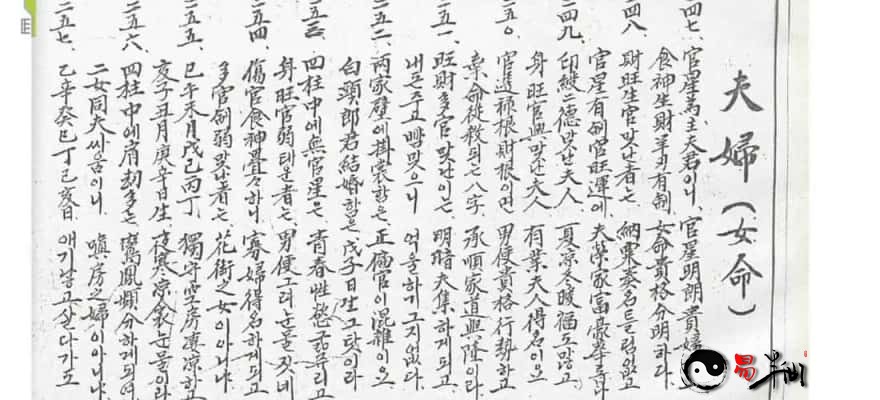 夫婦(女命)
四七、官星爲主夫君이니 官星明朗貴婦
食神生財羊刃有制 女命貴格分明하다
四八、財旺生官맞난者는 納粟奏名드림없고
官星有制官旺運에 夫榮家富豪華롭다
二四九、印綬二德맞난夫人 夏凉冬暖福도많고
身旺官興맞난夫人 有業夫人得名이요
二五〇、官逢禄根財根이면 男便貴格行勢하고
棄命從殺되는八字 承順家道興隆이라
二五一、旺財多官맞난이는 明暗夫集하게되고
내돈주고빰맞으니 억울하기그지없다
二五二、兩家壁에掛裳함은 正偏官이混雜이요
白頭郎君結婚함은 戊子日生그탓이라
二五三、四柱中에無官星은 青春性慾
身旺官弱태운者는 男便그려눈물짓네
二五四、傷官食神疊々하니 寡婦得名하게되고
多官制弱맞난者는 花街之女이아니냐
二五五、巳午未月戊己丙丁 獨守空房凄凉하고
亥子丑月庚辛日生 夜寒凉衾눈물이라
二五六、四柱中에肩劫多는 鸞鳳頻分하게되여
二女同夫싸움이니 嗔房之婦이아니냐
二五七、乙辛癸巳丁己亥日 애기낳고살다가도
易